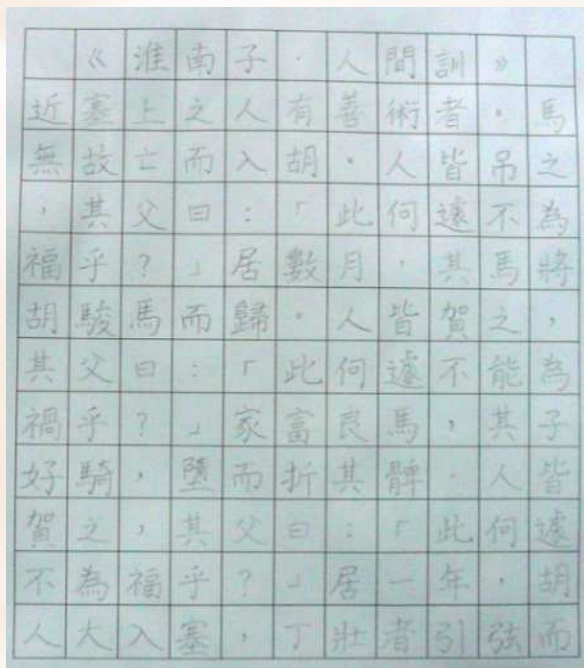 《淮南子·人間訓》
近塞上之人有善術者。馬
無故亡而入胡。人皆吊之
，其父曰：「此何遽不為
福乎？」居數月，其馬將
胡駿馬而歸。人皆賀之，
其父曰：「此何遽不能為
禍乎？」家富良馬，其子
好騎，墮而折其髀。人皆
賀之，其父曰：「此何遽
不為福乎？」居一年，胡
人大入塞，丁壯者引弦而